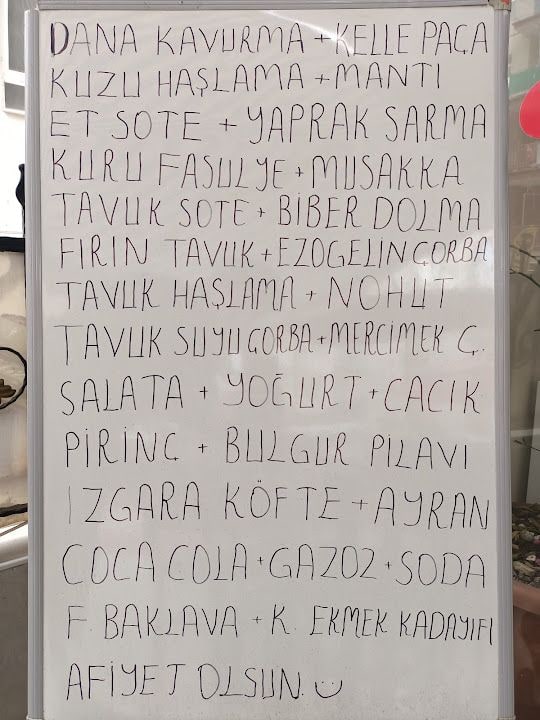 DANA KAVURMA + KELLE PAÇA
KUZU HAŞLAMA + MANTI
ET SOTE + YAPRAK SARMA
KURU FASULYE + MUSAKKA
TAVUK SOTE + BİBER DOLMA
FIRIN TAVUK + EZOGELİN ÇORBA
TAVUK HAŞLAMA + NOHUT
TAVUK SUYU ÇORBA + MERCİMEK Ç.
SALATA + YOĞURT + CACIK
PİRİNÇ + BULGUR PİLAVI
IZGARA KÖFTE + AYRAN
COCA COLA + GAZOZ + SODA
F. BAKLAVA + K. EKMEK KADAYIFI
AFİYET OLSUN. :)